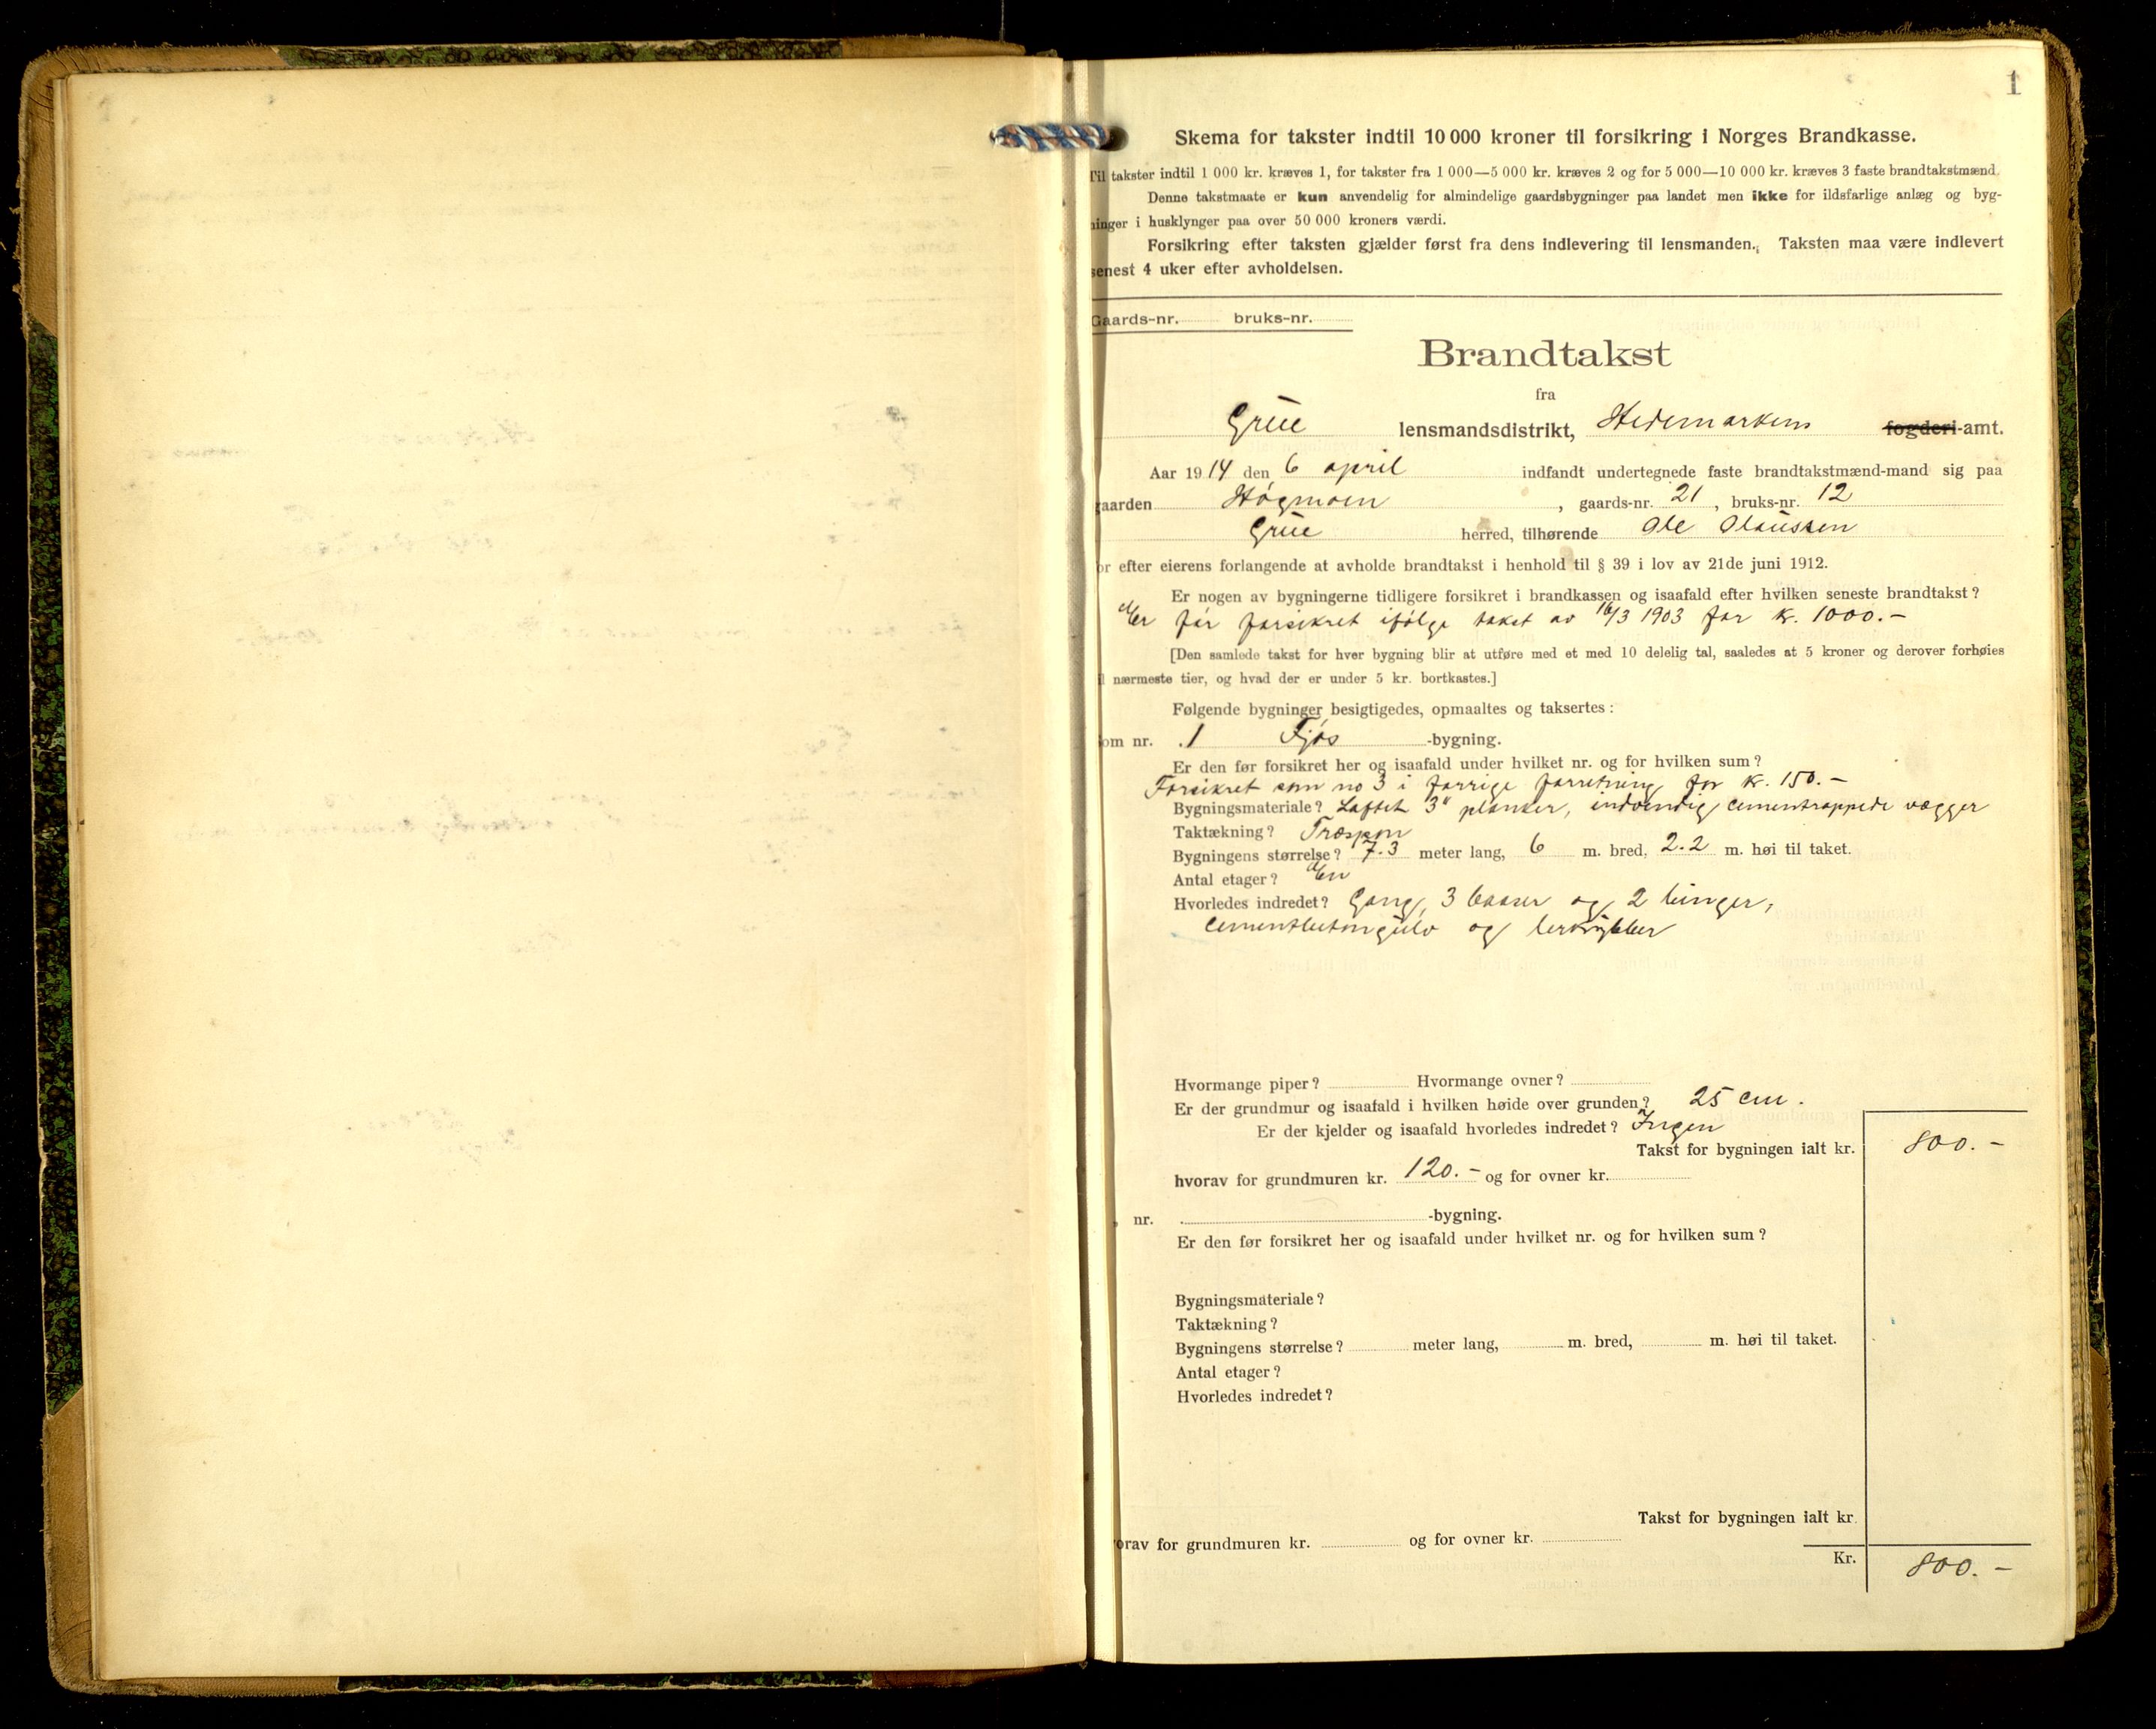 1
Skema for takster indtil 10 000 kroner til forsikring i Norges Brandkasse.
Til takster indtil 1 000 kr. kræves 1, for takster fra 1 000—5 000 kr. kræves 2 og for 5 000—10 000 kr. kræves 3 faste brandtakstmænd.
Denne takstmaate er kun anvendelig for almindelige gaardsbygninger paa landet men ikke for ildsfarlige anlæg og byg-
ninger i husklynger paa over 50 000 kroners værdi.
Forsikring efter taksten gjælder først fra dens indlevering til lensmanden. Taksten maa være indlevert
senest 4 uker efter avholdelsen.
Gaards-nr. bruks-nr.
Brandtakst
fra
Grue lensmandsdistrikt, Hedemarkens fogderi-amt.
Aar 1914 den 6 april indfandt undertegnede faste brandtakstmænd-mand sig paa
gaarden Høgmoen, gaards-nr. 21, bruks-nr. 12
Grue herred, tilhørende Ole Olaussen
or efter eierens forlangende at avholde brandtakst i henhold til § 39 i lov av 21de juni 1912.
Er nogen av bygningerne tidligere forsikret i brandkassen og isaafald efter hvilken seneste brandtakst?
Er før forsikret ifølge takst av 16/3 1903 for kr. 1000.-
[Den samlede takst for hver bygning blir at utføre med et med 10 delelig tal, saaledes at 5 kroner og derover forhøies
l nærmeste tier, og hvad der er under 5 kr. bortkastes.]
Følgende bygninger besigtigedes, opmaaltes og taksertes:
om nr. 1 Fjøs -bygning.
Er den før forsikret her og isaafald under hvilket nr. og for hvilken sum?
Forsikret som no 3 i forrige forretning for kr. 150.-
Bygningsmateriale? Laftet 3" planker, indvendig cementrappede vægger
Taktækning? Træspon
Bygningens størrelse? 7.3 meter lang, 6 m. bred, 2.2 m. høi til taket.
Antal etager? En
Hvorledes indredet? Gang, 3 baaser og 2 binger,
cementbetongulv og
Hvormange piper? Hvormange ovner?
Er der grundmur og isaafald i hvilken høide over grunden? 25 cm.
Er der kjelder og isaafald hvorledes indredet? Ingen
Takst for bygningen ialt kr. 800.-
hvorav for grundmuren kr. 120.- og for ovner kr.
nr. -bygning.
Er den før forsikret her og isaafald under hvilket nr. og for hvilken sum?
Bygningsmateriale?
Taktækning?
Bygningens størrelse? meter lang, m. bred, m. høi til taket.
Antal etager?
Hvorledes indredet?
Takst for bygningen ialt kr.
orav for grundmuren kr. og for ovner kr.
Kr. 800.-